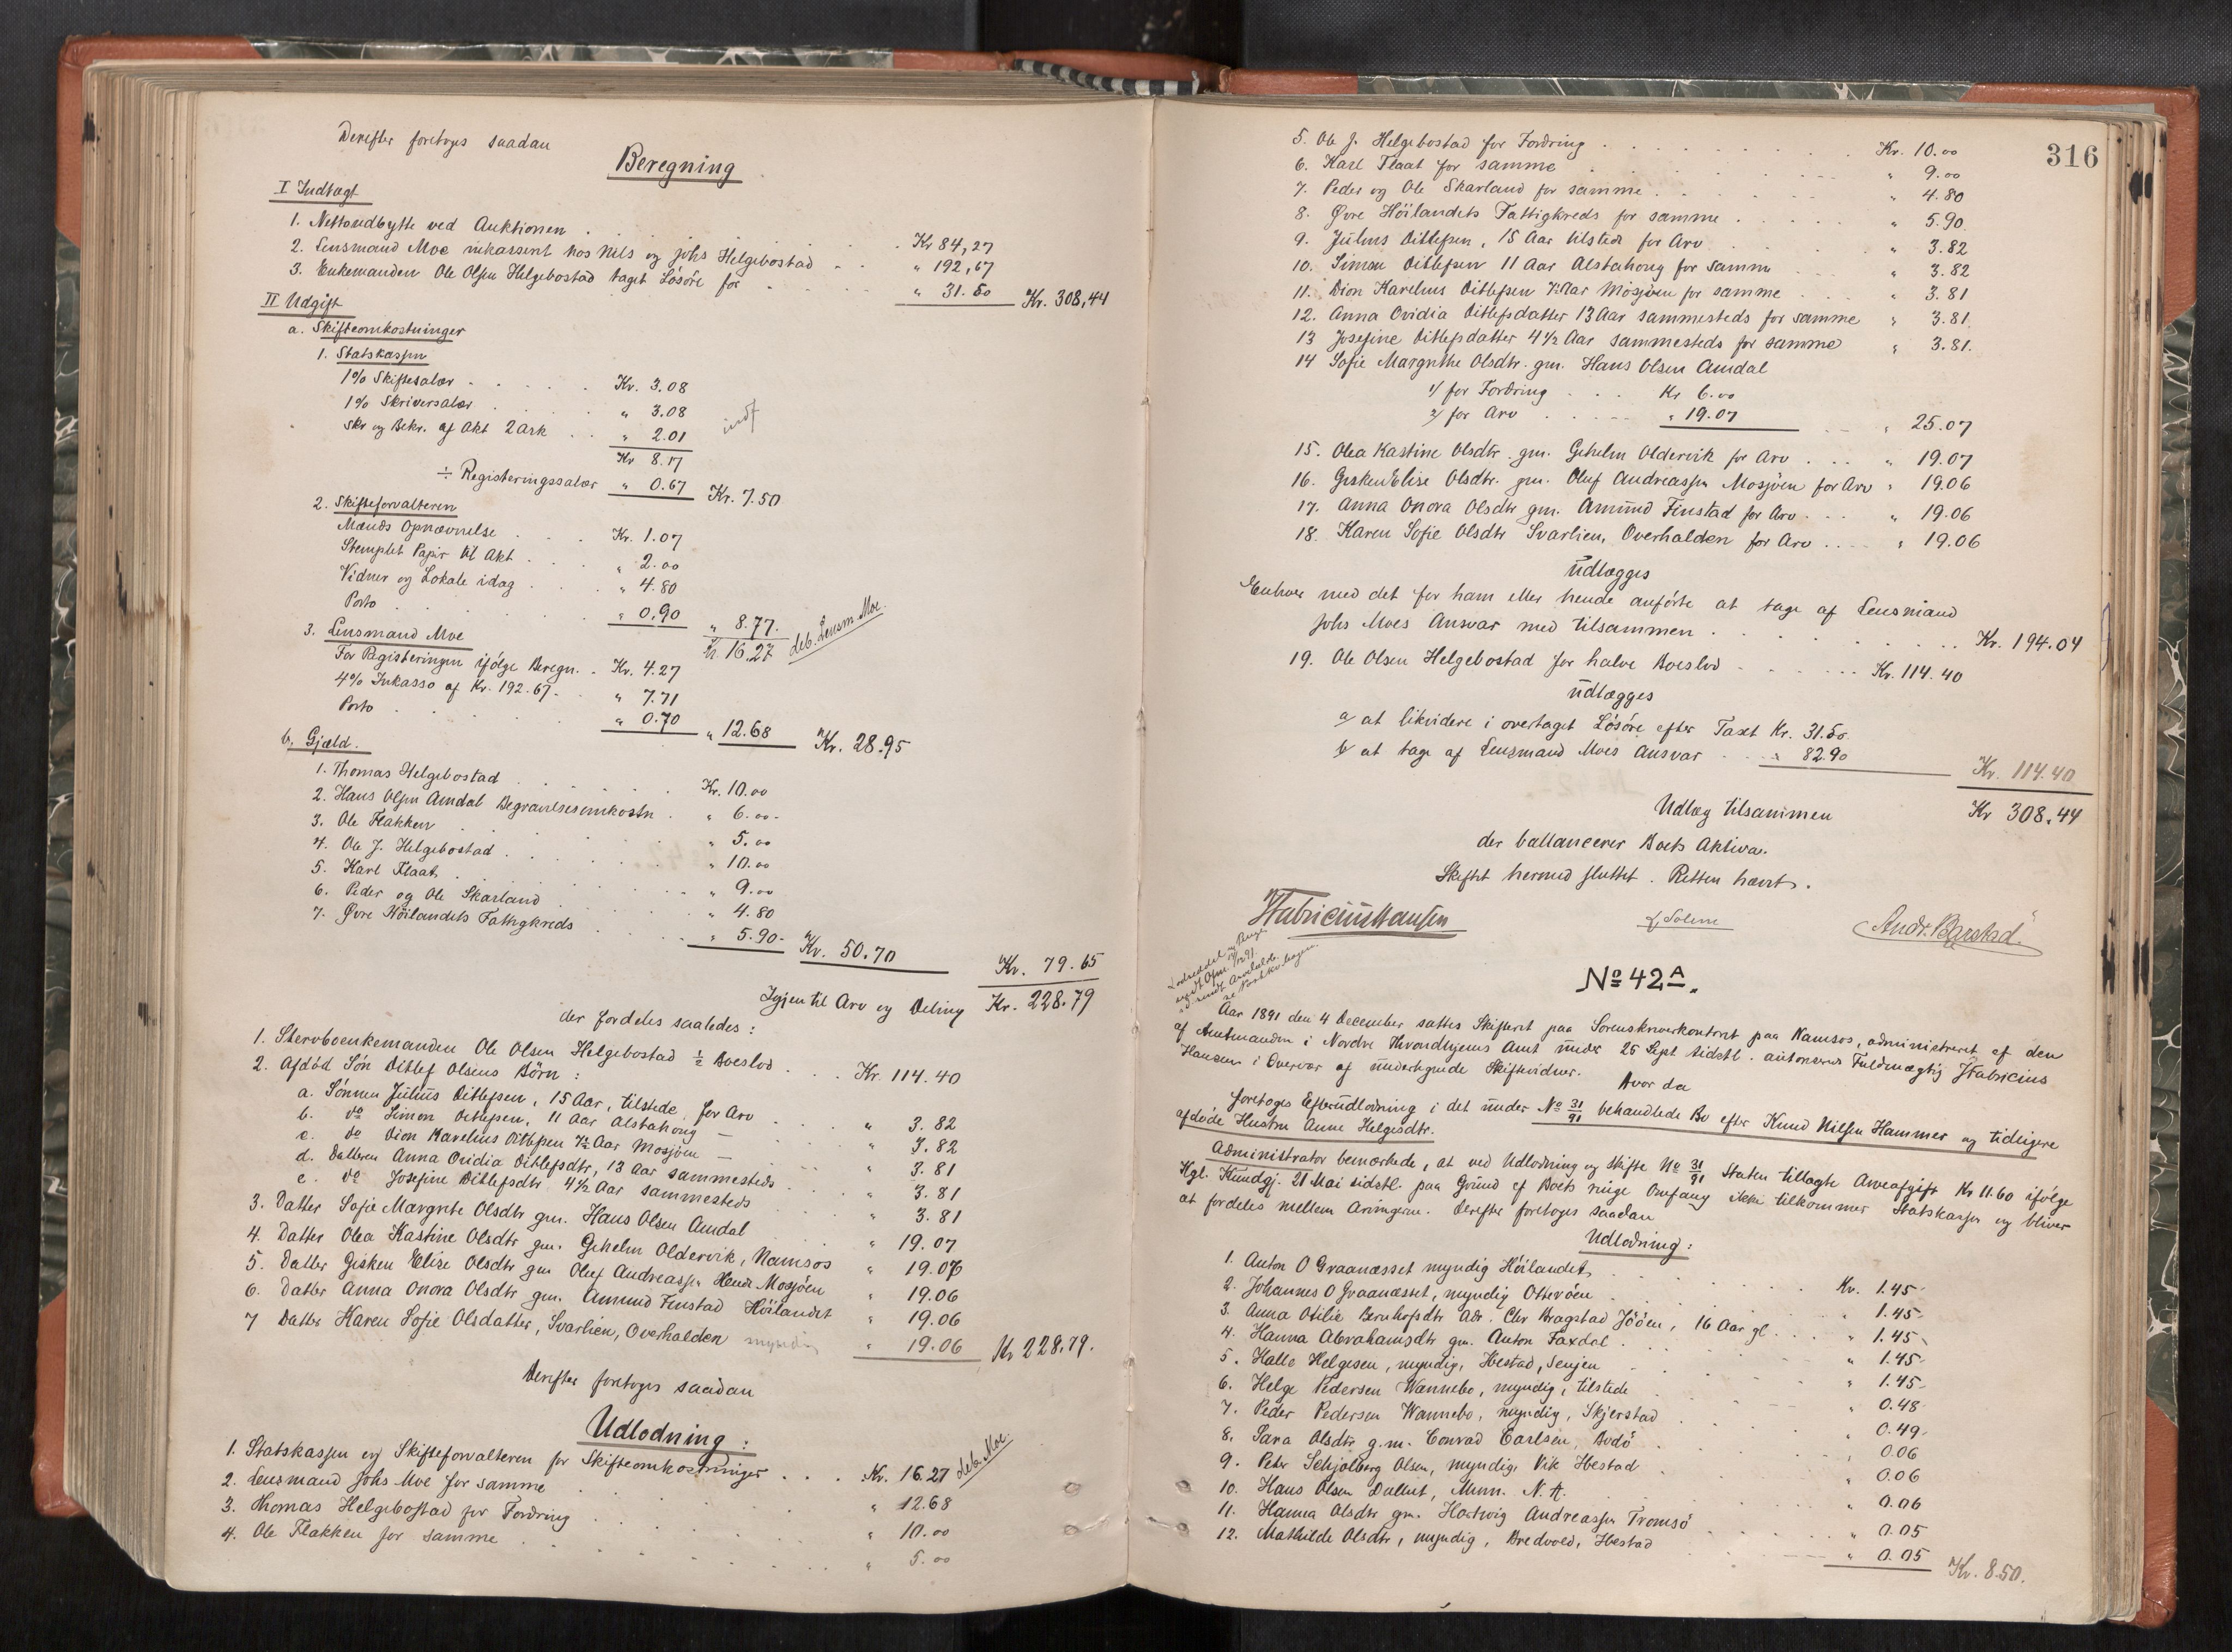 Derefter foretoges saadan
Beregning
I Indtægt
1. Nettoudbytte ved Auktionen . . Kr 84,27
2. Lensmand Moe inkasseret hos Nils og Johs Helgebostad . . " 192,67
3. Enkemanden Ole Olsen Helgebostad taget Løsøre for . . " 31.50 Kr. 308,44
II Udgift
a. Skifteomkostninger
1. Statskassen
1% Skiftesalær . . Kr. 3.08
1% Skriversalær . . " 3.08
Skr og Bekr. af Akt 2 Ark . . " 2.01
Kr 8.17
÷ Registeringssalær " 0.67 Kr. 7.50
2. Skifteforvalteren
Mænds Opnævnelse . . Kr. 1.07
Stemplet Papir til Akt . . " 2.00
Vidner og Lokale idag . . " 4.80
Porto . . " 0.90 " 8.77.
Kr. 16,27 deb. Lensm. Moe.
3. Lensmand Moe
For Registeringen ifølge Beregn. . Kr. 4.27
4% Inkasso af Kr. 192.67. " 7.71
Porto . . " 0.70 " 12.68 Kr. 28.95
b. Gjæld.
1. Thomas Helgebostad . . Kr. 10.00
2. Hans Olsen Amdal Begravelsesomkostn . " 6.00-
3. Ole Flakken . . " 5.00
4. Ole J. Helgebostad . . " 10.00
5. Karl Flaat . . " 9.00
6. Peder og Ole Skarland . . " 4.80
7. Øvre Høilandets Fattigkreds . . " 5.90- Kr. 50.70 Kr. 79.65
Igjen til Arv og Deling Kr. 228.79
der fordeles saaledes:
1. Stervboenkemanden Ole Olsen Helgebostad ½ Boeslod . . Kr. 114.40
2. Afdød Søn Ditlef Olsens Børn:
a. Sønnen Julius Ditlefsen, 15 Aar, tilstede, for Arv . . " 3.82
b. do Simon Ditlefsen, 11 Aar Alstahoug — " 3.82
c. do Dion Karelius Ditlefsen 7½ Aar Mosjøen — " 3.81
d. Datteren Anna Ovidia Ditlefsdtr, 13 Aar sammesteds . . " 3.81
e. do Josefine Ditlefsdtr 4½ Aar sammesteds . . " 3.81
3. Datter Sofie Margrete Olsdtr gm. Hans Olsen Amdal " 19.07
4. Datter Olea Kastine Olsdtr gm. Gehelm Oldervik, Namsos " 19.07
5. Datter Gisken Elise Olsdtr gm Oluf Andreassen Mosjøen " 19.06
6. Datter Anna Onora Olsdtr gm. Amund Finstad Høilandet " 19.06
7 Datter Karen Sofie Olsdatter, Svarlien, Overhalden myndig " 19.06 Kr 228,79.
Derefter foretoges saadan
Udlodning:
1. Statskassen og Skifteforvalteren for Skifteomkostninger . . . Kr. 16.27 deb. Moe.
2. Lensmand Johs Moe for samme . . " 12.68
3. Thomas Helgebostad for Fordring . . " 10.00
4. Ole Flakken for samme . . " 5.00
316
5. Ole J. Helgebostad for Fordring . . Kr. 10.00
6. Karl Flaat for samme . . " 9.00
7. Peder og Ole Skarland for samme . . " 4.80
8. Øvre Høilandets Fattigkreds for samme . . " 5.90.
9. Julius Ditlefsen, 15 Aar tilstede for Arv . . " 3.82
10. Simon Ditlefsen 11 Aar Alstahoug for samme . . " 3.82
11. Dion Karelius Ditlefsen 7½ Aar Mosjøen for samme . . " 3.81
12. Anna Ovidia Ditlefsdatter 13 Aar sammesteds for samme " 3.81.
13 Josefine Ditlefsdatter 4½ Aar sammesteds for samme " 3.81.
14 Sofie Margrethe Olsdtr. gm. Hans Olsen Amdal
1/ for Fordring . . . Kr 6.00
2/ for Arv . . " 19.07 . . " 25.07
15. Olea Kastine Olsdtr. gm. Gehelm Oldervik for Arv . . . " 19.07
16. Gisken Elise Olsdtr. gm. Oluf Andreassen Mosjøen for Arv " 19.06
17. Anna Onora Olsdtr gm. Amund Finstad for Arv . . . " 19.06
18. Karen Sofie Olsdtr Svarlien, Overhalden for Arv . . " 19.06
udlægges
Enhver med det for ham eller hende anførte at tage af Lensmand
Johs Moes Ansvar med tilsammen . . Kr. 194.04
19. Ole Olsen Helgebostad for halve Boeslod . . Kr. 114.40
udlægges
a/ at likvidere i overtaget Løsøre efter Taxt Kr. 31.50.
b/ at tage af Lensmand Moes Ansvar . . " 82.90
Kr. 114.40
Udlæg tilsammen Kr 308.44
der ballancerer Boets Aktiva.
Skiftet hermed sluttet. Retten hævet.
JFabriciusHansen Solem Andr. Barstad.
No 42 A.
Aar 1891 den 4 December sattes Skifteret paa Sorenskriverkontoret paa Namsos, administreret af den
af Amtmanden i Nordre Throndhjems Amt under 25 Sept sidstl. autoriserede Fuldmægtig JFabricius
Hansen i Overvær af undertegnede Skiftevidner. Hvor da
foretoges Efterudlodning i det under No 31/91 behandlede Bo efter Knud Nilsen Hammer og tidligere
afdøde Hustru Anne Helgesdtr.
Administrator bemærkede, at ved Udlodning og Skifte No 31/91 Staten tillagte Arveafgift Kr 11.60 ifølge
Kgl. Kundgj. 21 Mai sidstl. paa Grund af Boets ringe Omfang ikke tilkommer Statskassen og bliver
at fordeles mellem Arvingerne. Derefter foretoges saadan
Udlodning:
1. Anton O Graanæsset myndig Høilandet . . Kr. 1.45-
2. Johannes O Graanæsset, myndig Otterøen . . " 1.45-
3. Anna Otilie Bernhofsdtr Adr. Chr Bragstad Jøøen, 16 Aar gl. . . " 1.45
4. Hanna Abrahamsdtr gm. Anton Faxdal . . " 1.45-
5. Halle Helgesen, myndig, Ibestad, Senjen . . " 1.45-
6. Helge Pedersen Wannebo, myndig, tilstede . . " 0.48-
7. Peder Pedersen Wannebo, myndig, Skjerstad . . " 0.49-
8. Sara Olsdtr g.m. Conrad Carlsen, Bodø . . " 0.06
9. Peter Schjølberg Olsen, myndig, Vik Ibestad . . " 0.06
10. Hans Olsen Dullut, Minn. N.A. . . " 0.06
11. Hanna Olsdtr gm. Hartvig Andreassen Tromsø . . " 0.05
12. Mathilde Olsdtr, myndig, Bredvold, Ibestad . . " 0.05 Kr. 8.50.